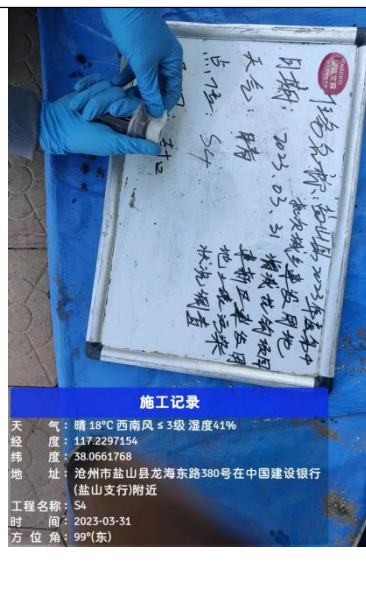 任务名称：盐山县2023年度
批次城乡建设用地
增减挂钩项目
建新区建设用
地土壤污染
状况调查
日期：2023.03.31
天气：晴
点位：S4
封口
施工记录
天气：晴 18℃ 西南风 ≤ 3级 湿度41%
经度：117.2297154
纬度：38.0661768
地址：沧州市盐山县龙海东路380号在中国建设银行
(盐山支行)附近
工程名称：S4
时间：2023-03-31
方位角：99°(东)